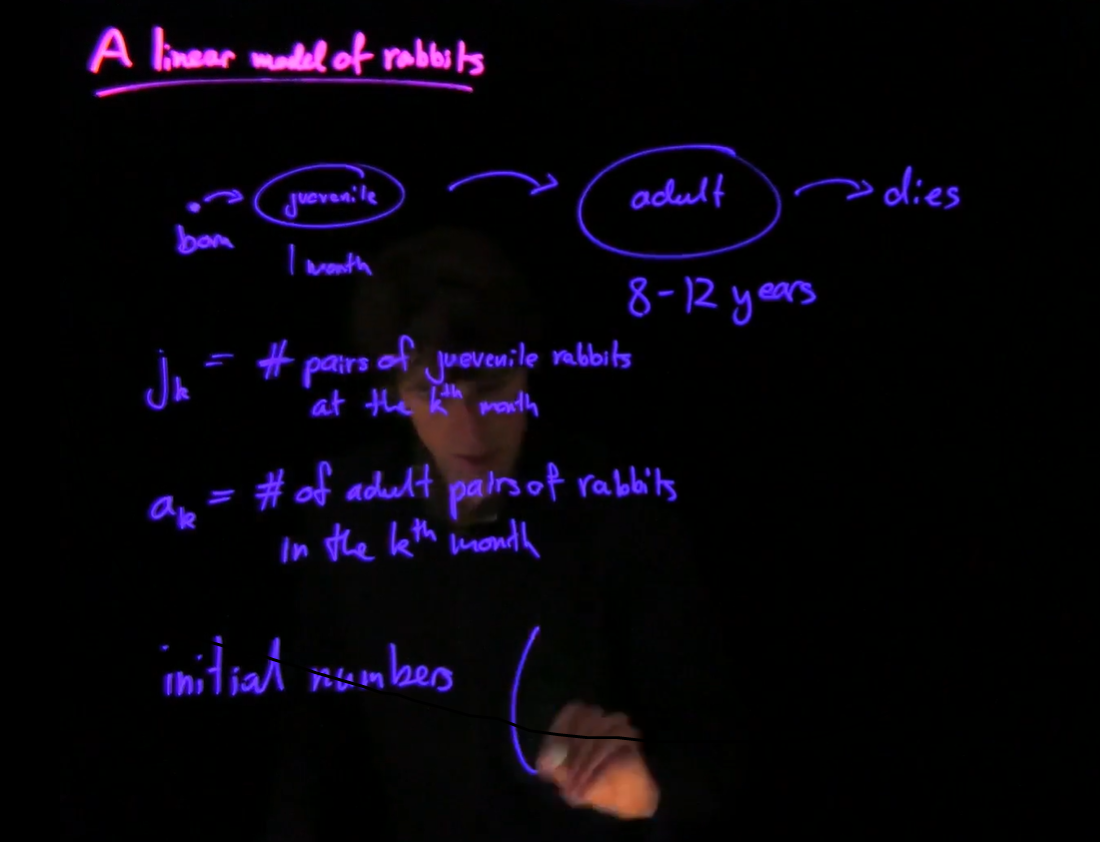 A linear model of rabbits
juevenile
adult
dies
born
1 month
8-12 years
jk = # pairs of juevenile rabbits
at the kth month
ak = # of adult pairs of rabbits
in the kth month
initial numbers (